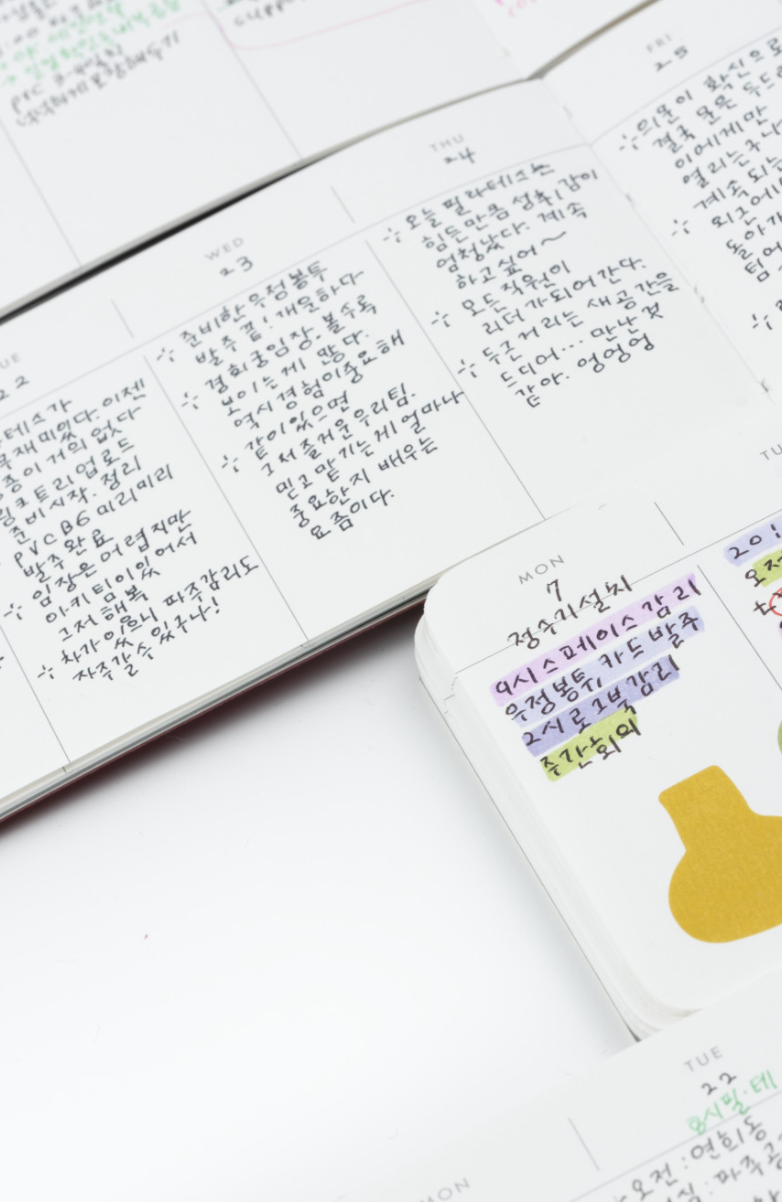 FRI
25
THU
24
⊹ 오늘 필라테스는
힘든만큼 성취감이
엄청났다. 계속
하고싶어~
⊹ 모든 직원이
리더가되어간다.
⊹ 두근거리는 새공간을
드디어... 만난것
같아. 엉엉엉
⊹ 의문이 확신으로
결국 문은 두드
이에게만
열리는구나
⊹ 계속 되는
외근에
돌아가
팀
WED
23
⊹ 준비한 우정봉투
발주 끝! 개운하다
⊹ 경희궁임장. 볼수록
보이는게 많다.
역시 경험이중요해
⊹ 같이있으면
그저 즐거운 우리팀.
믿고 맡기는게 얼마나
중요한지 배우는
요즘이다.
UE
22
테스가
무재미있다. 이젠
증이 거의 없다
링크트리 업로드
준비시작. 정리
PVC B6 미리미리
발주완료
⊹ 임장은어렵지만
아키팀이있어서
그저 해복
⊹ 차가있으니 파주감리도
자주갈수있구나!
MON
7
정수기설치
9시 스페이스 감리
우정봉투, 카드발주
2시 로고북감리
주간회의
TU
오전
TUE
22
8시필.테
오전 : 연희동
: 파주
MON